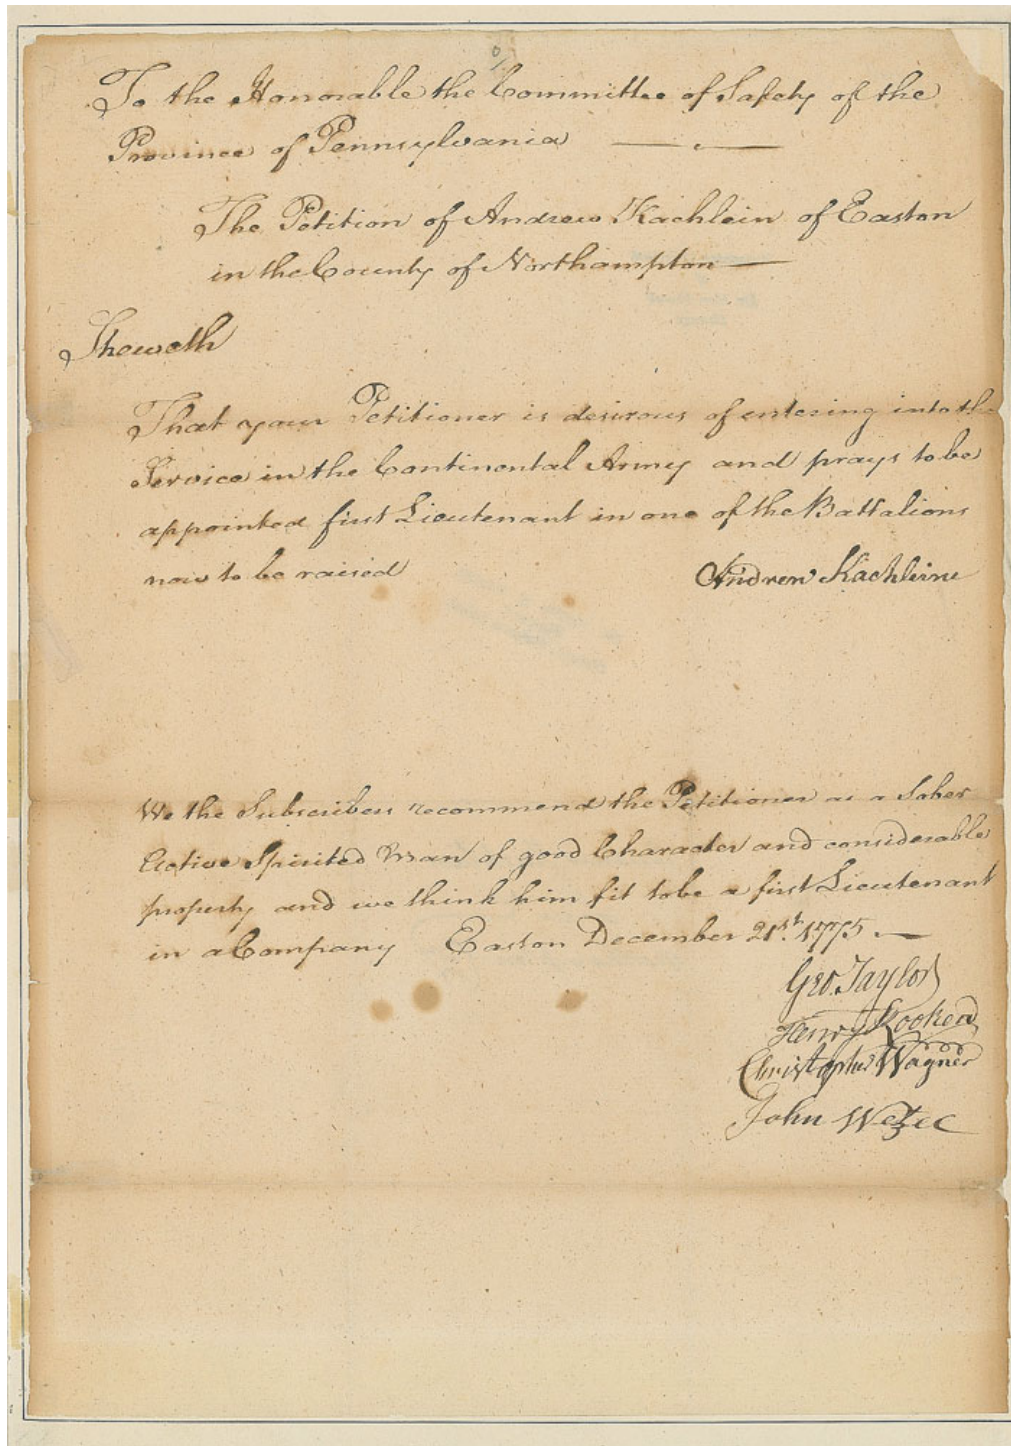 To the Honorable the Committee of Safety of the
Province of Pennsylvania
The Petition of Andrew Kachlein of Easton
in the County of Northampton
Sheweth
That your Petitioner is desirous of entering into the
Service in the Continental Army and prays to be
appointed first Lieutenant in one of the Battalions
now to be raised
Andrew Kachleine
We the Subscribers recommend the Petitioner as a Sober
Active Spirited Man of good Character and considerable
property and we think him fit to be a first Lieutenant
in a Company Easton December 21st. 1775.
Geo. Taylor
Henry Kooken
Christopher Wagner
John Wetzel